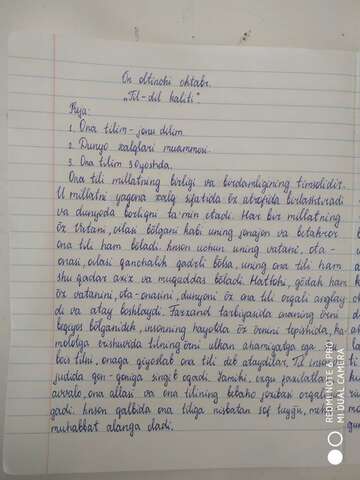 On oltinchi oktabr.
"Til-dil kaliti".
Reja:
1. Ona tilim - jonu dilim.
2. Dunyo xalqlari muammosi.
3. Ona tilim 30 yoshda.
Ona tili millatning borligi va birdamligining timsolidir.
U millatni yagona xalq sifatida öz atrofida birlashtiradi
va dunyoda borligni ta'min etadi. Har bir millatning
öz Vatani, oilasi bölgani kabi uning jonajon va betakror
ona tili ham böladi. Inson uchun uning vatani, ota-
onasi, oilasi qanchalik qadrli bölsa, uning ona tili ham
shu qadar aziz va muqaddas böladi. Hattoki, gödak ham
öz vatanini, ota-onasini, dunyoni öz ona tili orqali anglay-
di va atay boshlaydi. Farzand tarbiyasida onaning örni
beqiyos bölganidek, insonning hayotda öz örnini topishida, ka-
molotga erishuvida tilning örni ulkan ahamiyatga ega. Shu
bois tilni, onaga qiyoslab ona tili deb ataydilar. Til inson vu-
judida qon-qoniga singib oqadi. Samimi, ezgu fazilatlar
avvalo, ona allasi va ona tilining bebaho jozibasi orqali
qadi. Inson qalbida ona tiliga nisbatan sof tuyğu, mehr
muhabbat alanga oladi.
REDMI NOTE 8 PRO
MI DUAL CAMERA